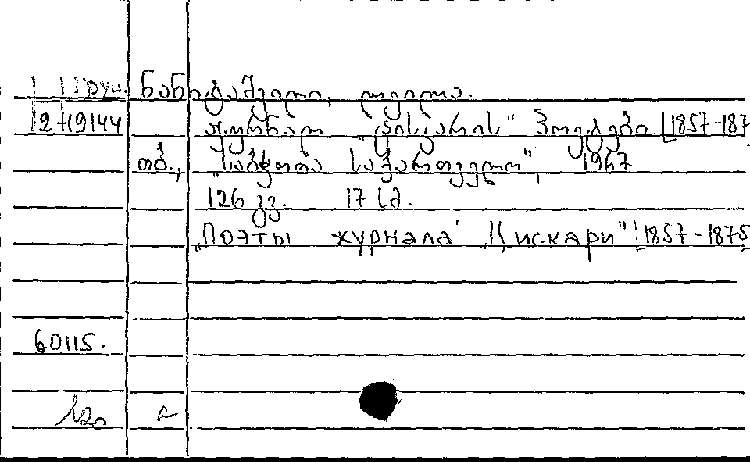 ნანიტაშვილი, თვალთა.
12-19144 ჟურნალ „ცისკარის" პოეტები [1857-187
თბ., „საბჭოთა საქართველო", 1967
126 გვ. 17 სმ.
„Поэты журнала „Цискари" [1857-1875
60115.